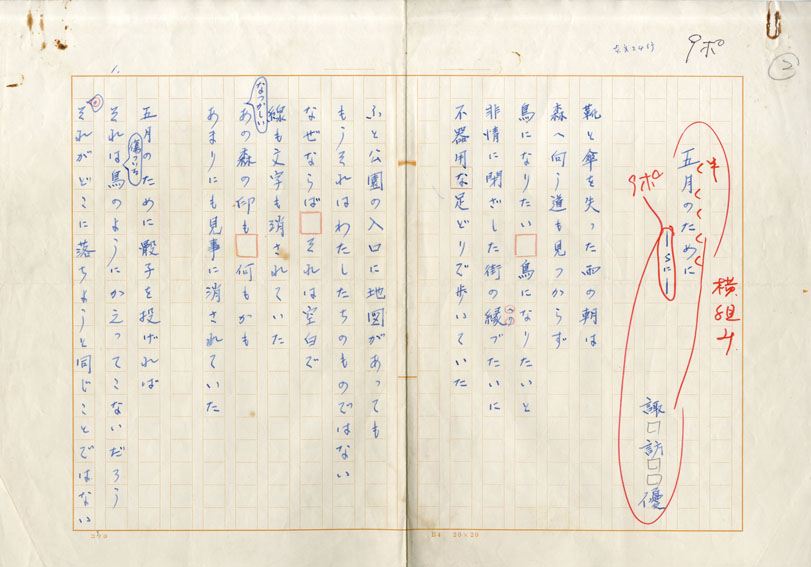 2
9ポ
横組み
五月のために
9ポ
諏訪優
靴と傘を失った雨の朝は
森へ向う道も見つからず
鳥になりたい 鳥になりたいと
非情に閉ざした街の縁づたいに
へり
不器用な足どりで歩いていた
ふと公園の入口に地図があっても
もうそれはわたしたちのものではない
なぜならば それは空白で
線も文字も消されていた
なつかしい
あの森の印も 何もかも
あまりにも見事に消されていた
五月のために骰子を投げれば
傷ついた
それは鳥のようにかえってこないだろう
それがどこに落ちようと同じことではない
1.
コクヨ
B4 20×20